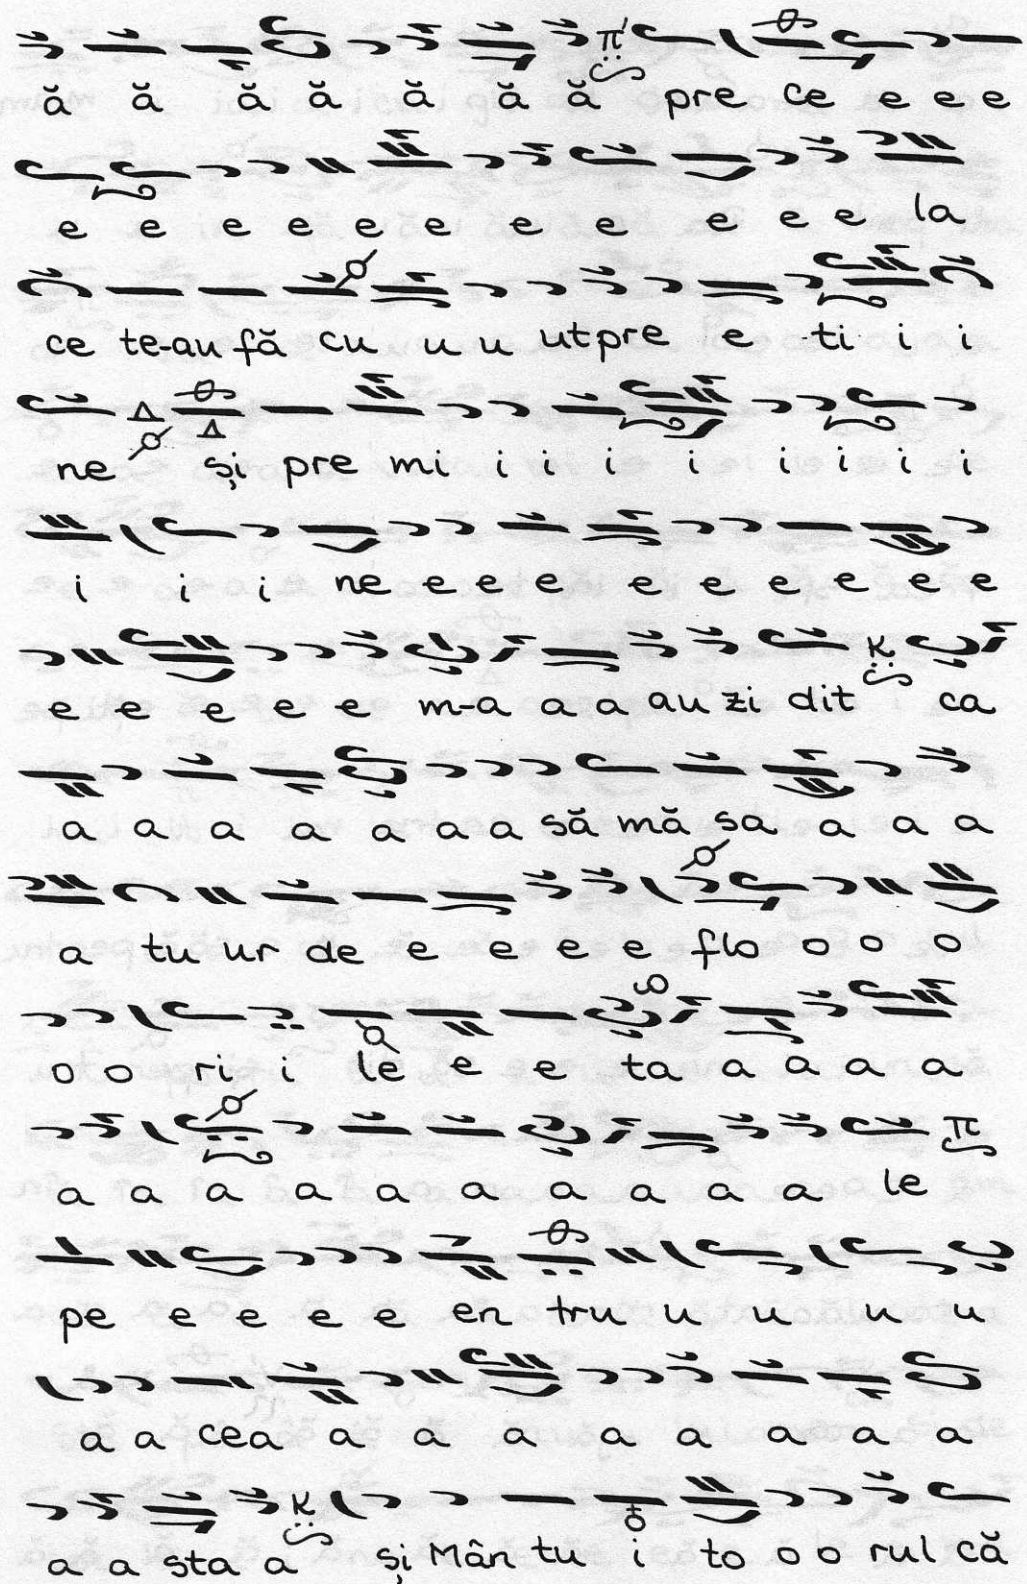 ă ă ă ă ă ă ă pre ce e e e
e e e e e e e e e e e la
ce te-au fă cu u u ut pre e ti i i
ne și pre mi i i i i i i i i
i i i ne e e e e e e e e e
e e e e e m-a a a au zi dit ca
a a a a a a a să mă sa a a a
a tu ur de e e e e flo o o o
o o ri i le e e ta a a a a
a a a a a a a a a a le
pe e e e e en tru u u u u u
a a cea a a a a a a a a
a a sta a și Mân tu i to o o rul că